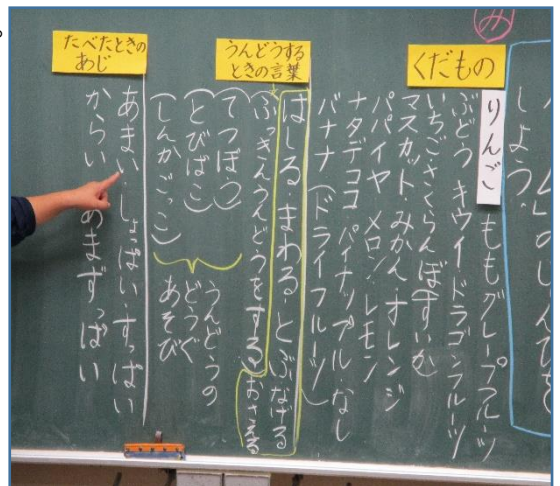 み
しよう。
くだもの
りんご ももグレープフルーツ
ぶどう キウイ ドラゴンフルーツ
いちご・さくらんぼ すいか
マスカット・みかん・オレンジ
パパイヤ メロン・レモン
ナタデココ・パイナップル・なし
バナナ (ドライフルーツ)
うんどうする
ときの言葉
はしる まわる とぶ なげる
ぶっきんうんどうをする おさえる
(てつぼう)
(とびばこ)
(しんかごっこ)
うんどうの
どうぐ
あそび
たべたときの
あじ
あまい・しょっぱい・すっぱい
からい あまずっぱい